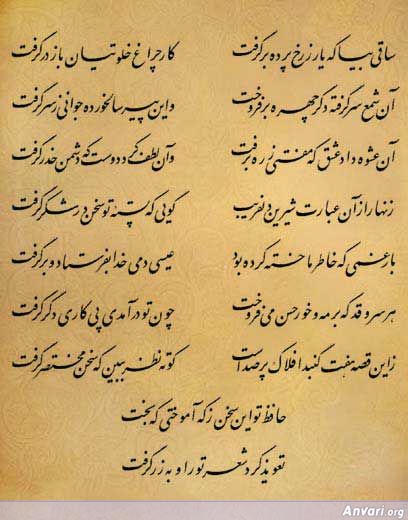 ساقی بیا که یار ز رخ پرده برگرفت کار چراغ خلوتیان باز درگرفت
آن شمع سرگرفته دگر چهره برفروخت واین پیر سالخورده جوانی ز سر گرفت
آن عشوه داد عشق که مفتی ز ره برفت وآن لطف کرد دوست که دشمن حذر گرفت
زنهار از آن عبارت شیرین دلفریب گویی که پسته تو سخن در شکر گرفت
بار غمی که خاطر ما خسته کرده بود عیسی دمی خدا بفرستاد و برگرفت
هر سروقد که بر مه و خور حسن می فروخت چون تو درآمدی پی کاری دگر گرفت
زاین قصه هفت گنبد افلاک پر صداست کوته نظر ببین که سخن مختصر گرفت
حافظ تو این سخن ز که آموختی که بخت
تعویذ کرد شعر تو را و به زر گرفت
Anvari.org